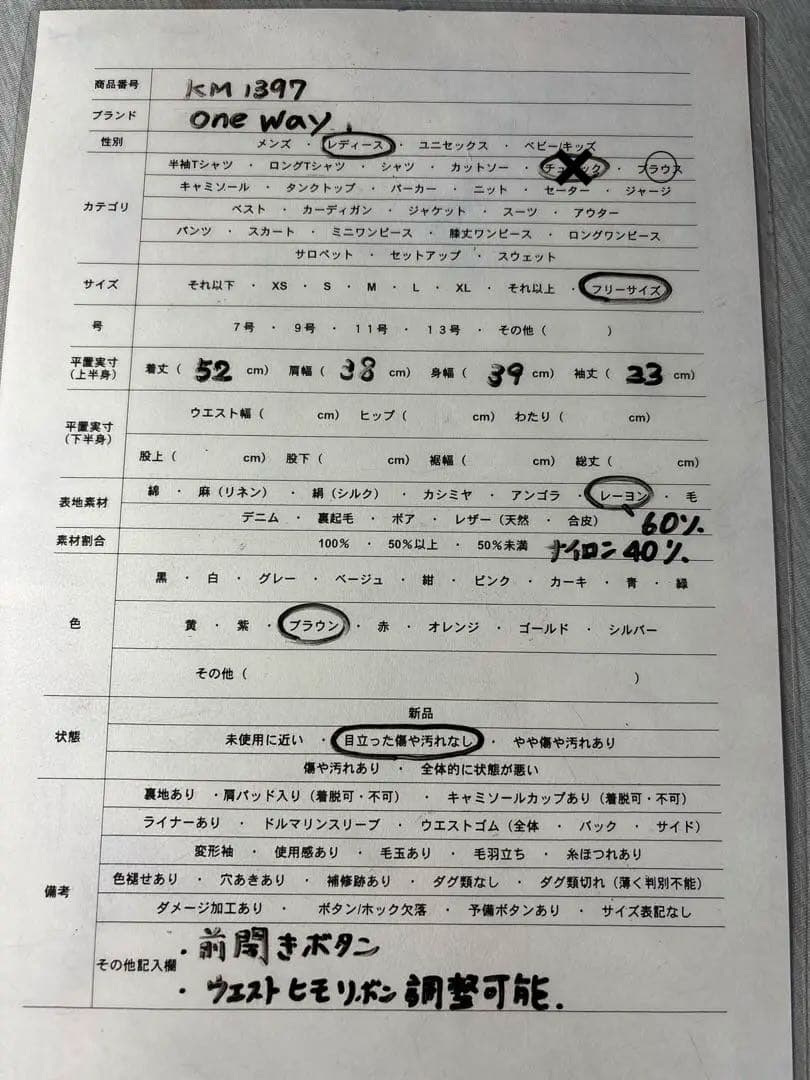 商品番号 KM1397
ブランド one way
性別 メンズ ・ レディース ・ ユニセックス ・ ベビー/キッズ
カテゴリ
半袖Tシャツ ・ ロングTシャツ ・ シャツ ・ カットソー ・ チュニック ・ ブラウス
キャミソール ・ タンクトップ ・ パーカー ・ ニット ・ セーター ・ ジャージ
ベスト ・ カーディガン ・ ジャケット ・ スーツ ・ アウター
パンツ ・ スカート ・ ミニワンピース ・ 膝丈ワンピース ・ ロングワンピース
サロペット ・ セットアップ ・ スウェット
サイズ それ以下 ・ XS ・ S ・ M ・ L ・ XL ・ それ以上 ・ フリーサイズ
号 7号 ・ 9号 ・ 11号 ・ 13号 ・ その他（ ）
平置実寸（上半身） 着丈（ 52 cm） 肩幅（ 38 cm） 身幅（ 39 cm） 袖丈（ 33 cm）
平置実寸（下半身）
ウエスト幅（ cm） ヒップ（ cm） わたり（ cm）
股上（ cm） 股下（ cm） 裾幅（ cm） 総丈（ cm）
表地素材
綿 ・ 麻（リネン） ・ 絹（シルク） ・ カシミヤ ・ アンゴラ ・ レーヨン ・ 毛
デニム ・ 裏起毛 ・ ボア ・ レザー（天然 ・ 合皮） 60%
素材割合 100% ・ 50%以上 ・ 50%未満 ナイロン40%
色
黒 ・ 白 ・ グレー ・ ベージュ ・ 紺 ・ ピンク ・ カーキ ・ 青 ・ 緑
黄 ・ 紫 ・ ブラウン ・ 赤 ・ オレンジ ・ ゴールド ・ シルバー
その他（ ）
状態
新品
未使用に近い ・ 目立った傷や汚れなし ・ やや傷や汚れあり
傷や汚れあり ・ 全体的に状態が悪い
備考
裏地あり ・肩パッド入り（着脱可・不可） ・ キャミソールカップあり（着脱可・不可）
ライナーあり ・ ドルマリンスリーブ ・ ウエストゴム（全体 ・ バック ・ サイド）
変形袖 ・ 使用感あり ・ 毛玉あり ・ 毛羽立ち ・ 糸ほつれあり
色褪せあり ・ 穴あきあり ・ 補修跡あり ・ ダグ類なし ・ ダグ類切れ（薄く判別不能）
ダメージ加工あり ・ ボタン/ホック欠落 ・ 予備ボタンあり ・ サイズ表記なし
その他記入欄
・前開きボタン
・ウエストヒモリボン調整可能.